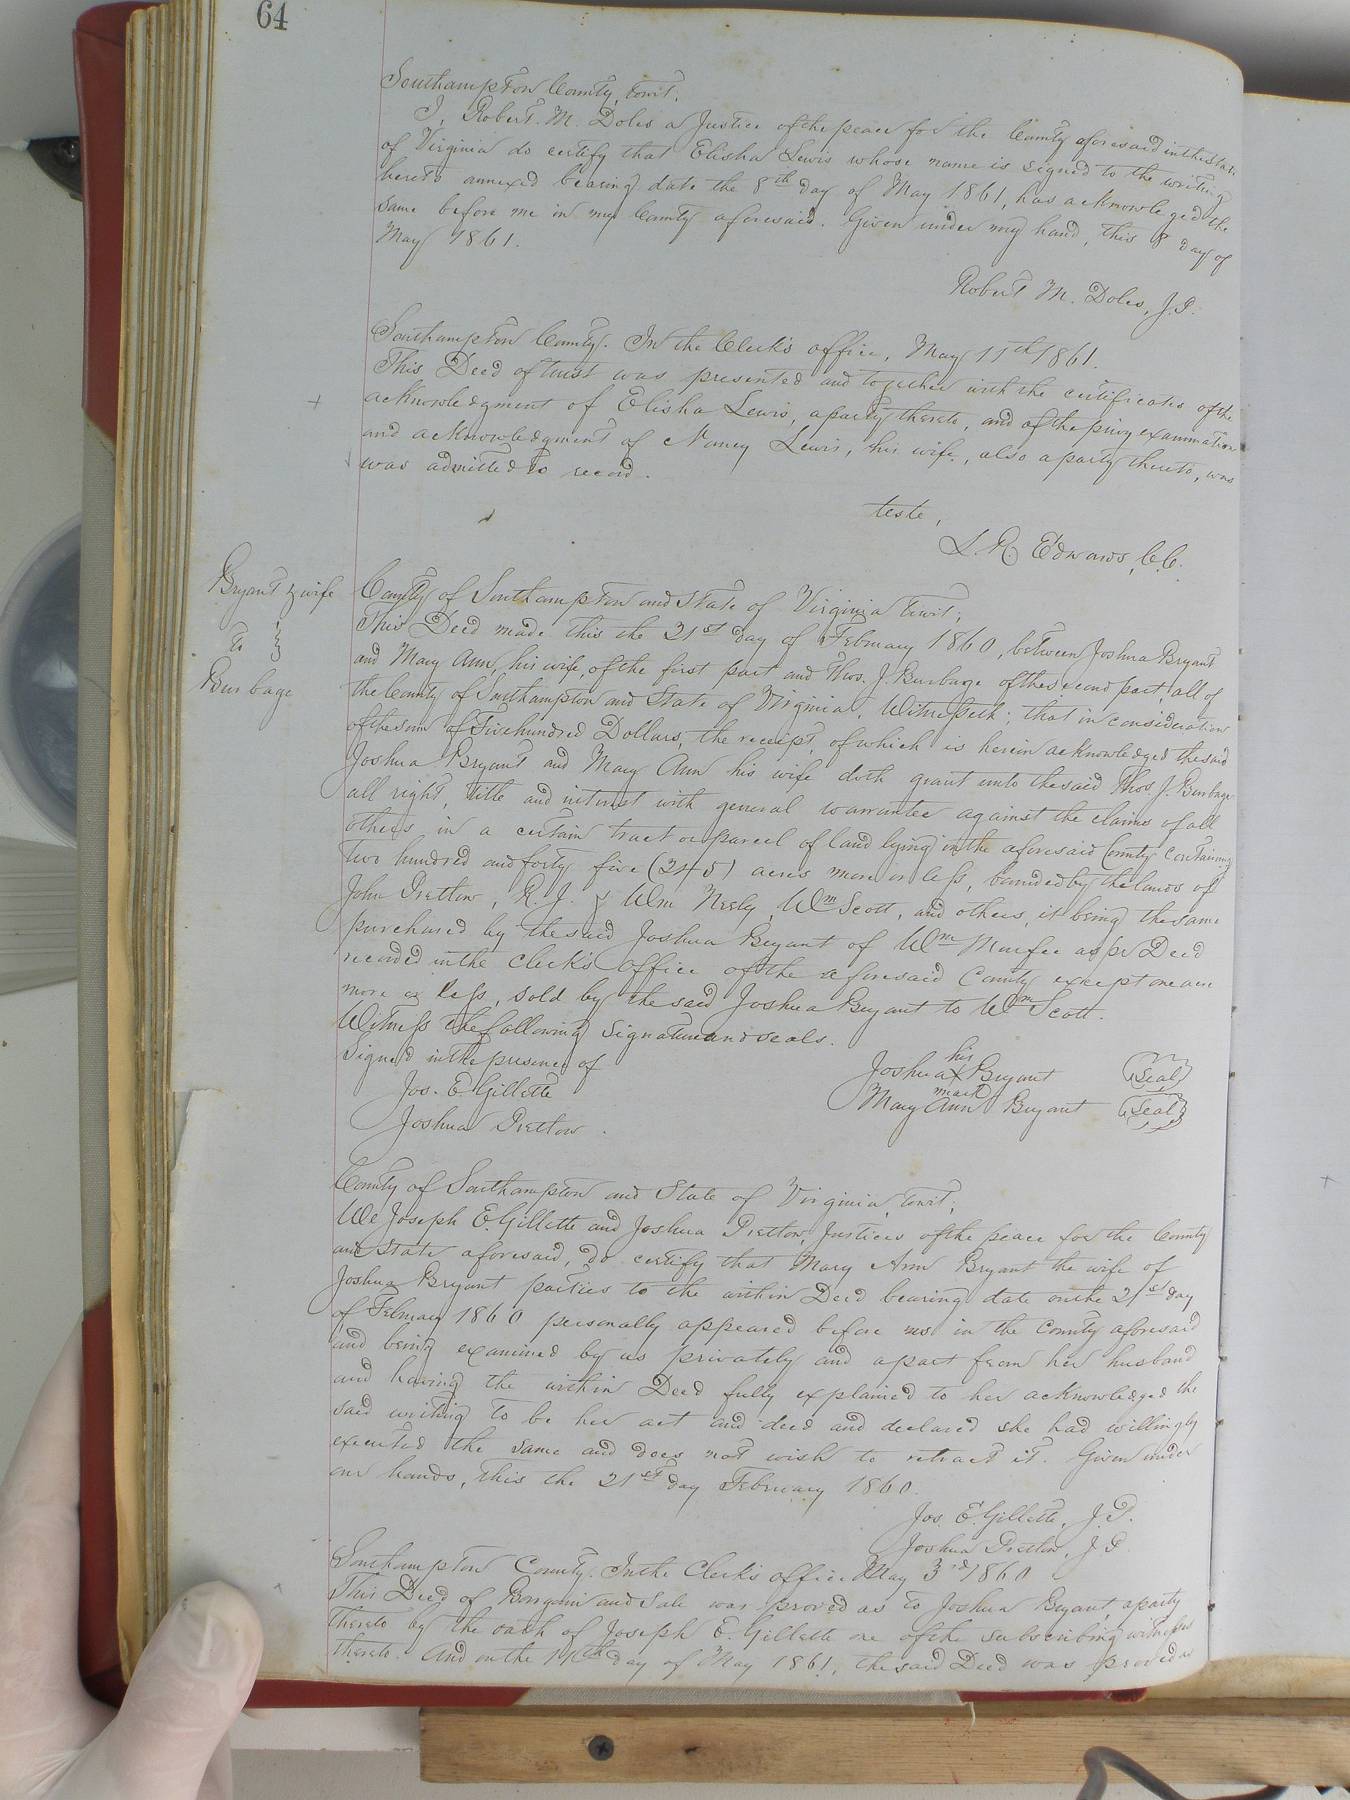 64
Southampton County, towit,
I, Robert. M. Doles a Justice of the peace for the County aforesaid in the State
of Virginia do certify that Elisha Lewis whose name is signed to the writing
hereto annexed bearing date the 8th day of May 1861, has acknowledged the
same before me in my County aforesaid. Given under my hand, this 8 day of
May 1861.
Robert M. Doles, J.P.
Southampton County. In the Clerk's office, May 11th 1861.
This Deed of trust was presented and together with the certificates of the
acknowledgment of Elisha Lewis, a party thereto, and of the privy examination
and acknowledgment of Nancy Lewis, his wife, also a party thereto, was
was admitted to record.
teste,
L. R. Edwards, C.C.
Bryant & wife
to
Burbage
County of Southampton and State of Virginia towit;
This Deed made this the 21st day of February 1860, between Joshua Bryant
and Mary Ann, his wife, of the first part and Thos. J. Burbage of the second part, all of
the County of Southampton and State of Virginia. Witnesseth; that in consideration
of the sum of Five hundred Dollars, the receipt, of which is herein acknowledged the said
Joshua Bryant and Mary Ann his wife doth grant unto the said Thos J. Burbage
all right, title and interest with general warrantee against the claims of all
others in a certain tract or parcel of land lying in the aforesaid County containing
two hundred and forty five (245) acres more or less, bounded by the lands of
John Pretlow, R. J. & Wm Neely, Wm Scott, and others, it being the same
purchased by the said Joshua Bryant of Wm Murfee as pr Deed
recorded in the clerk's office of the aforesaid County except one acre
more or less, sold by the said Joshua Bryant to Wm Scott.
Witness the following signature and seals.
Signed in the presence of
Jos. E Gillette
Joshua Pretlow.
his
Joshua X Bryant (Seal)
mark
Mary Ann Bryant (Seal)
County of Southampton and State of Virginia, towit;
We Joseph E. Gillette and Joshua Pretlow, Justices of the peace for the County
and State aforesaid, do certify that Mary Ann Bryant the wife of
Joshua Bryant parties to the within Deed bearing date on the 21st day
of February 1860 personally appeared before us in the County aforesaid
and being examined by us privately and apart from her husband
and having the within Deed fully explained to her acknowledged the
said writing to be her act and deed and declared she had willingly
executed the same and does not wish to retract it. Given under
our hands, this the 21st day February 1860.
Jos. E. Gillette, J.P.
Joshua Pretlow, J.P.
Southampton County. In the Clerk's office May 3rd 1860
This Deed of Bargain and Sale was proved as to Joshua Bryant, a party
thereto by the oath of Joseph E. Gillette one of the subscribing witnesses
thereto. And on the 11th day of May 1861, the said Deed was proved as